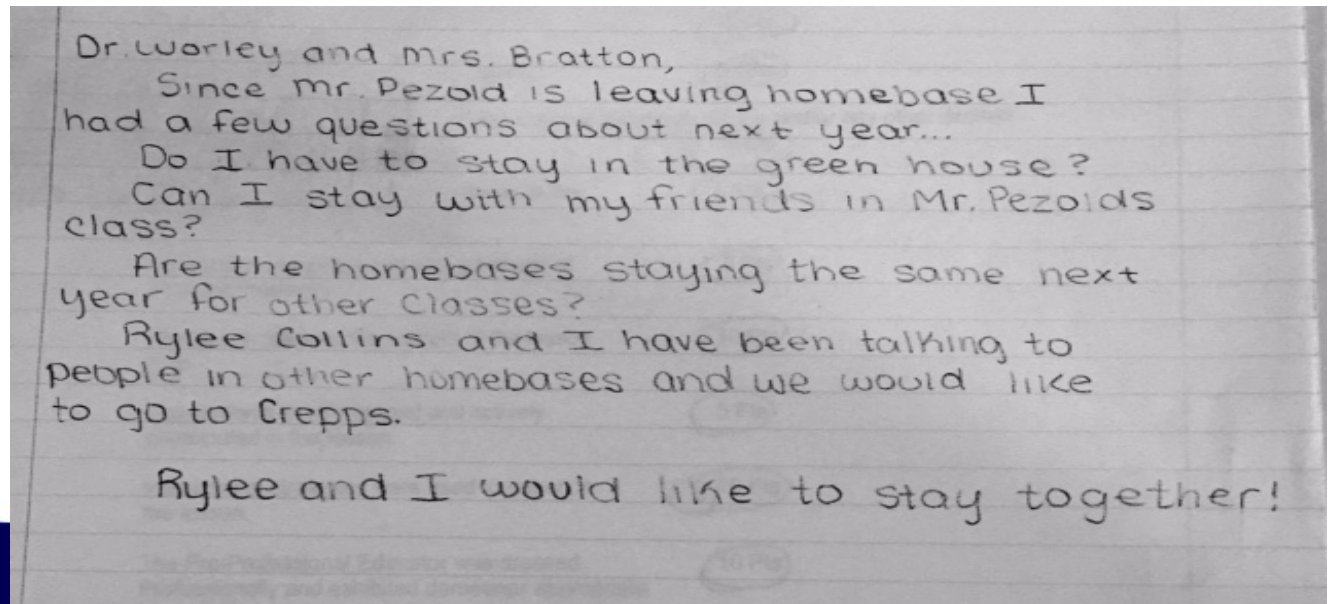 Dr. Worley and Mrs. Bratton,
Since Mr. Pezold is leaving homebase I
had a few questions about next year...
Do I have to stay in the green house?
Can I stay with my friends in Mr. Pezolds
class?
Are the homebases staying the same next
year for other classes?
Rylee Collins and I have been talking to
people in other homebases and we would like
to go to Crepps.
Rylee and I would like to stay together!